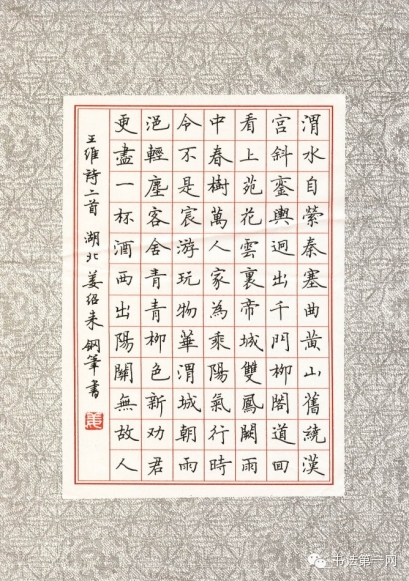 渭水自縈秦塞曲黄山舊繞漢
宮斜鑾輿迥出千門柳閣道回
看上苑花雲裏帝城雙鳳闕雨
中春樹萬人家為乘陽氣行時
令不是宸游玩物華渭城朝雨
浥輕塵客舍青青柳色新劝君
更盡一杯酒西出陽關無故人
王維詩二首 湖北姜绍来鋼筆書
姜
书法第一网